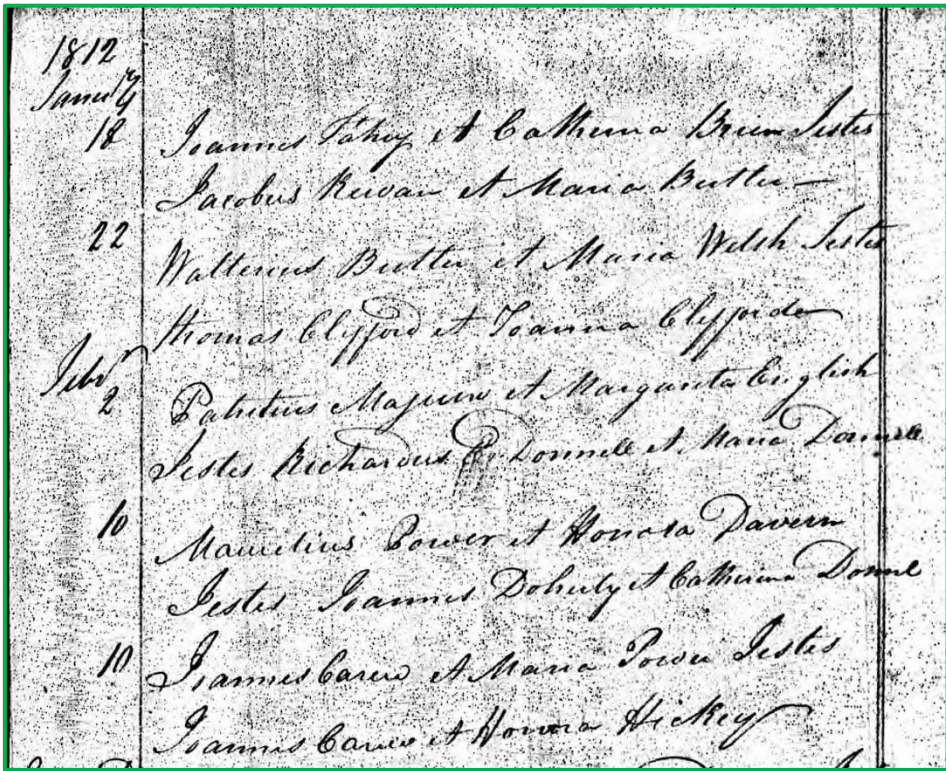 1812
Januy
18 Joannes Fahey et Catherina Breen Testes
Jacobus Kirwan et Maria Butler
22 Walterius Butler et Maria Welsh Testes
Thomas Clyfford et Joanna Clyfford
Febr
2 Patritius et Margarita English
Testes Richardus Donnell et Maria Donnell
10 Mauritius Power et Honora Davern
Testes Joannes Doherty et Catherina
10 Joannes Carew et Maria Power Testes
Joannes Carew et Honora Hickey